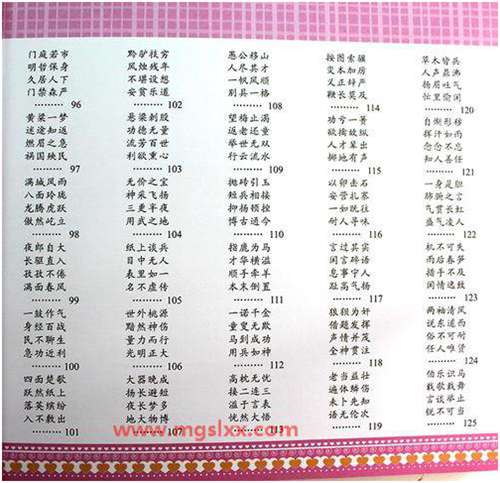 门庭若市
明哲保身
久居人下
门禁森严
......... 96
黄粱一梦
迷途知返
燃眉之急
祸国殃民
......... 97
满城风雨
八面玲珑
龙腾虎跃
傲然屹立
......... 98
夜郎自大
长驱直入
孜孜不倦
满面春风
......... 99
一鼓作气
身经百战
民不聊生
急功近利
......... 100
四面楚歌
跃然纸上
落英缤纷
入不敷出
......... 101
黔驴技穷
风烛残年
不堪设想
安贫乐道
......... 102
悬梁刺股
功德无量
流芳百世
利欲熏心
......... 103
无价之宝
神采飞扬
三更半夜
用武之地
......... 104
纸上谈兵
目中无人
表里如一
名不虚传
......... 105
世外桃源
黯然神伤
量力而行
光明正大
......... 106
大器晚成
扬长避短
夜长梦多
地大物博
......... 107
愚公移山
人尽其才
一帆风顺
别具一格
......... 108
望梅止渴
返老还童
举世无双
行云流水
......... 109
抛砖引玉
短兵相接
抑扬顿挫
博古通今
......... 110
指鹿为马
才华横溢
顺手牵羊
本末倒置
......... 111
一诺千金
童叟无欺
马到成功
用兵如神
......... 112
高枕无忧
接二连三
溢于言表
恍然大悟
......... 113
按图索骥
变本加厉
义正辞严
鞭长莫及
......... 114
功亏一篑
欲擒故纵
人才辈出
掷地有声
......... 115
以卵击石
安营扎寨
一如既往
耐人寻味
......... 116
言过其实
闲言碎语
息事宁人
趾高气扬
......... 117
狼狈为奸
借题发挥
声情并茂
全神贯注
......... 118
老当益壮
遍体鳞伤
未卜先知
语无伦次
......... 119
草木皆兵
人声鼎沸
扬眉吐气
忙里偷闲
......... 120
自惭形秽
挥汗如雨
念念不忘
知人善任
......... 121
一身是胆
肺腑之言
气贯长虹
盛气凌人
......... 122
机不可失
雨后春笋
措手不及
闲情逸致
......... 123
两袖清风
说东道西
俗不可耐
任人唯贤
......... 124
伯乐识马
载歌载舞
言谈举止
锐不可当
......... 125
www.mgslxx.com